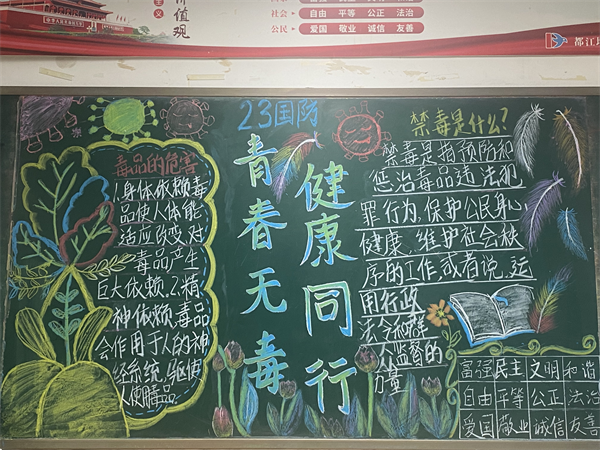 价值观
社会 自由 平等 公正 法治
公民 爱国 敬业 诚信 友善
都江
23国防
青春无毒
健康同行
毒品的危害
1.身体依赖毒
品使人体能
适应改变,对
毒品产生
巨大依赖。2.精
神依赖毒品
会作用于人的神
经系统,驱使
人使用毒品。
禁毒是什么?
禁毒是指预防和
惩治毒品违法犯
罪行为,保护公民身心
健康,维护社会秩
序的工作,或者说,运
用行政
法令和群
人监督的
力量
富强 民主 文明 和谐
自由 平等 公正 法治
爱国 敬业 诚信 友善